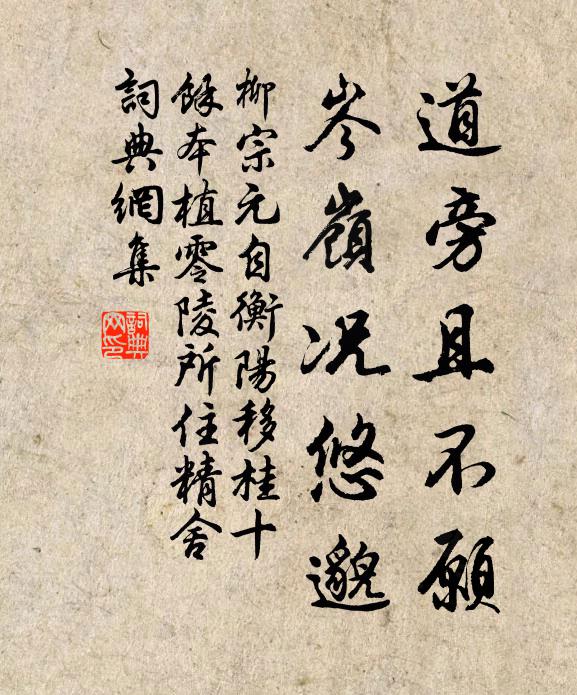 道旁且不願
岑嶺况悠邈
柳宗元自衡陽移桂十
餘本植零陵所住精舍
詞典網集
詞典
网印